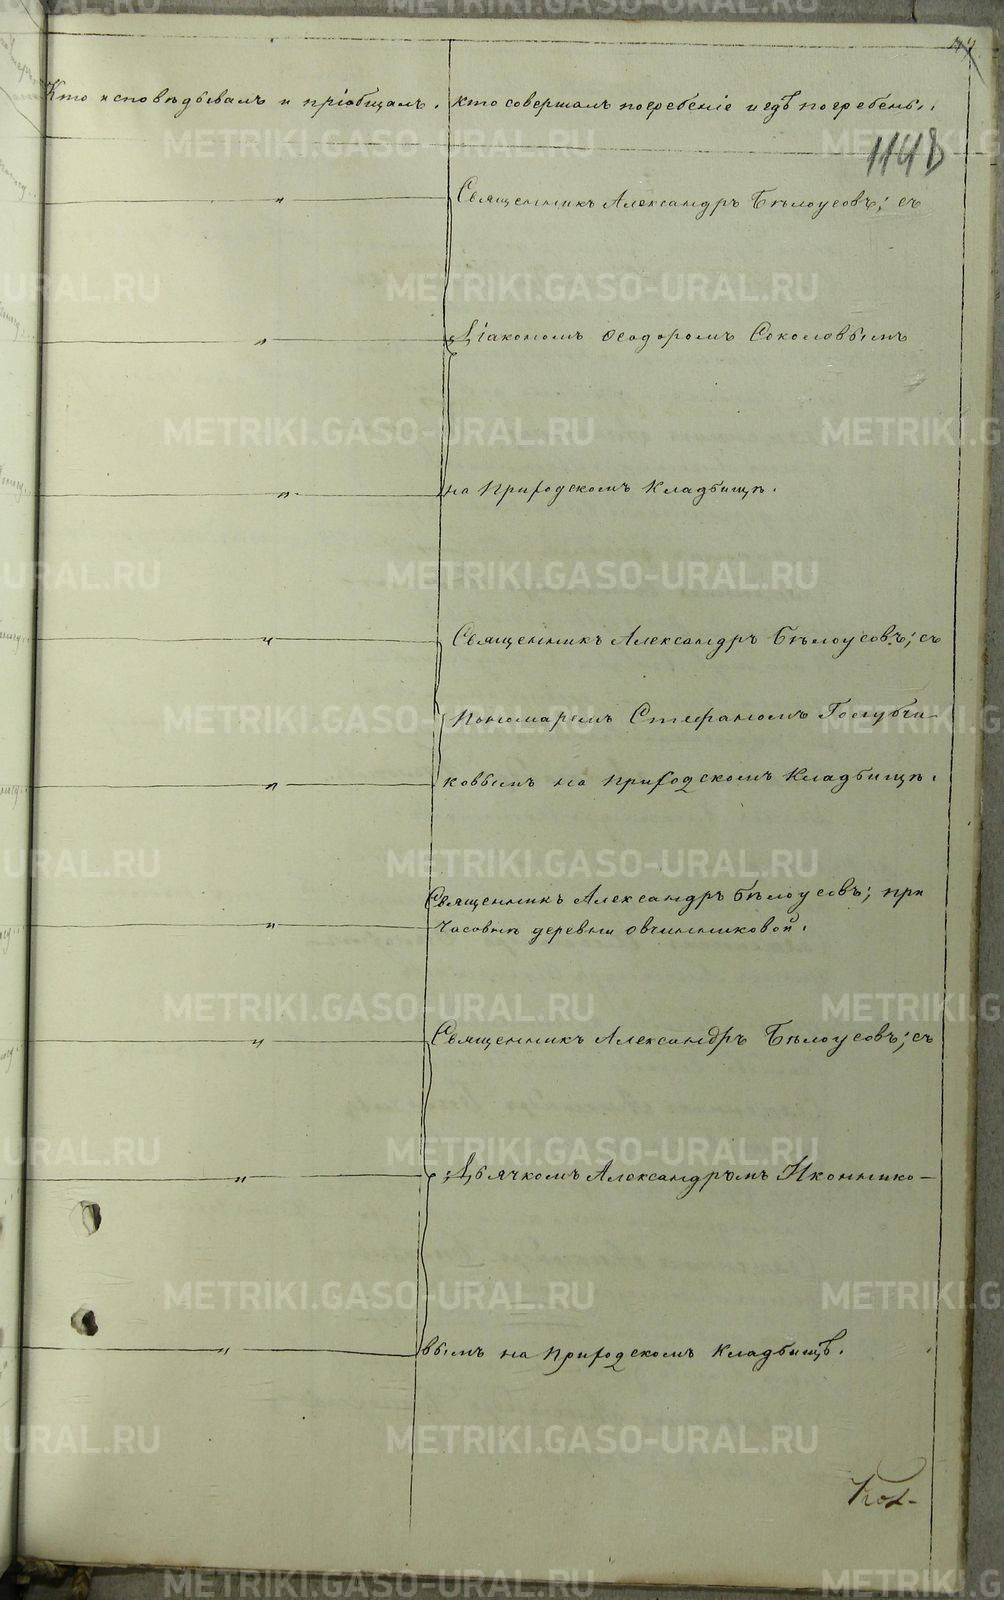 Кто исповѣдывалъ и пріобщалъ. кто совершалъ погребеніе и гдѣ погребены.
1148
" Священникъ Александръ Бѣлоусовъ; съ
" Діакономъ Ѳеодоромъ Соколовымъ
" на Приходскомъ Кладбищѣ.
" Священникъ Александръ Бѣлоусовъ; съ
Пономаремъ Стефаномъ Голубчи-
" ковымъ на Приходскомъ Кладбищѣ.
Священникъ Александръ Бѣлоусовъ; при
" Часовнѣ деревни Овчинниковой.
" Священникъ Александръ Бѣлоусовъ; съ
" Дьячкомъ Александромъ Иконнико-
" вымъ на Приходскомъ Кладбищѣ.
METRIKI.GASO-URAL.RU